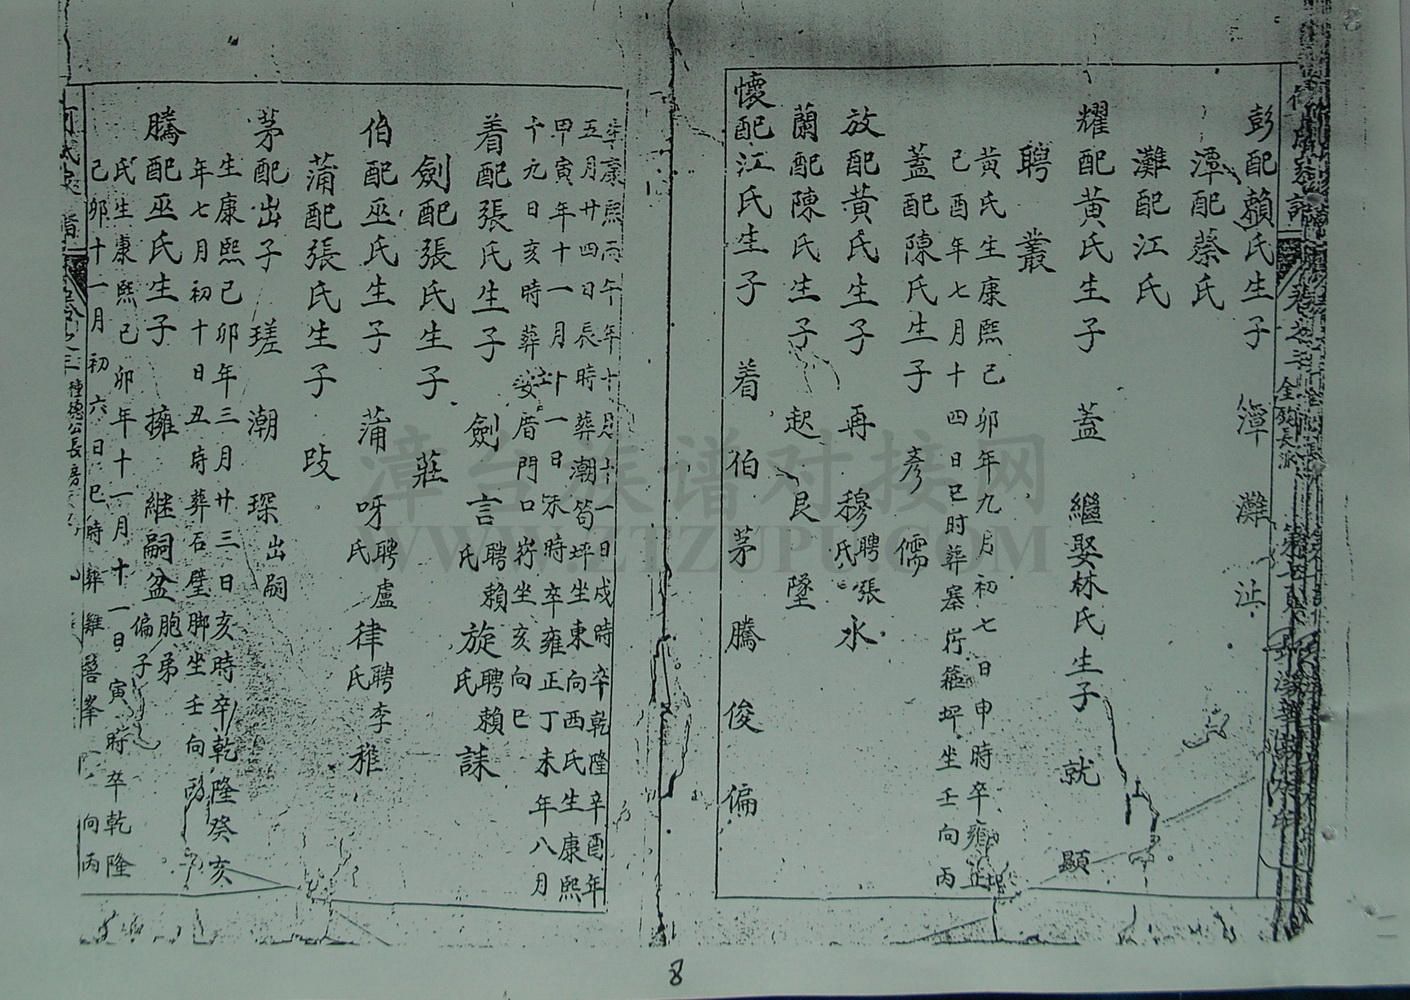 彭配賴氏生子 潭 灘 沚
潭配蔡氏
灘配江氏
耀配黄氏生子 蓋 繼娶林氏生子 就 顯
聘 叢
黄氏生康熙己卯年九月初七日申時卒雍正
己酉年七月十四日巳时葬寨 坪坐壬向丙
蓋配陳氏生子 彥 儒
放配黄氏生子 再 穆聘張氏 水
蘭配陳氏生子 起 艮 墜
懷配江氏生子 着 伯 茅 騰 俊 偏
生康熙丙午年十月十一日戍時卒乾隆辛酉年
五月廿四日辰時葬潮筍坪坐東向西氏生康熙
甲寅年十一月卄一日未時卒雍正丁未年八月
十九日亥時葬 安厝門口 坐亥向巳
着配張氏生子 劍 言聘賴氏 旋聘賴氏 誄
劍配張氏生子 莊
伯配巫氏生子 蒲 呀聘盧氏 律聘李氏 稚
蒲配張氏生子 𢻃
茅配出子 瑳 潮 琛出嗣
生康熙己卯年三月廿三日亥時卒乾隆癸亥
年七月初十日丑時葬石壁脚坐壬向
騰配巫氏生子 擁 継嗣盆胞弟偏子
氏生康熙己卯年十一月十一日寅時卒乾隆
己卯十一月初六日巳時葬雞 峯 向丙
卷之 種德公長房
卷之 金 長派
漳台族谱对接网
WWW.ZTZUPU.COM
8